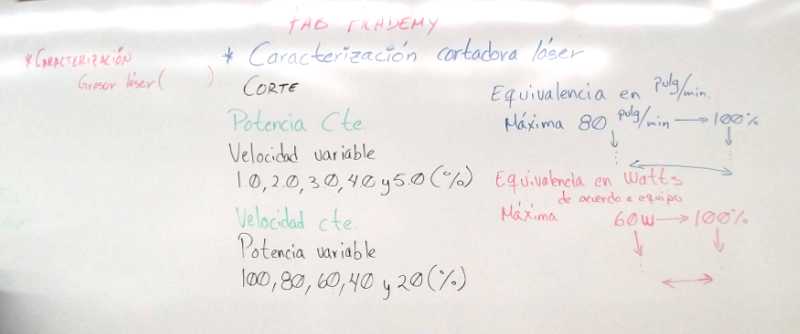 FAB ACADEMY
* CARACTERIZACIÓN
Grosor láser ( )
* Caracterización cortadora láser
CORTE
Potencia Cte.
Velocidad variable
1.0, 2.0, 3.0, 4.0 y 5.0 (%)
Velocidad cte.
Potencia variable
100, 80, 60, 40 y 20 (%)
Equivalencia en pulg/min.
Máxima 80 pulg/min → 100%
Equivalencia en Watts
de acuerdo a equipo
Máxima 60W → 100%